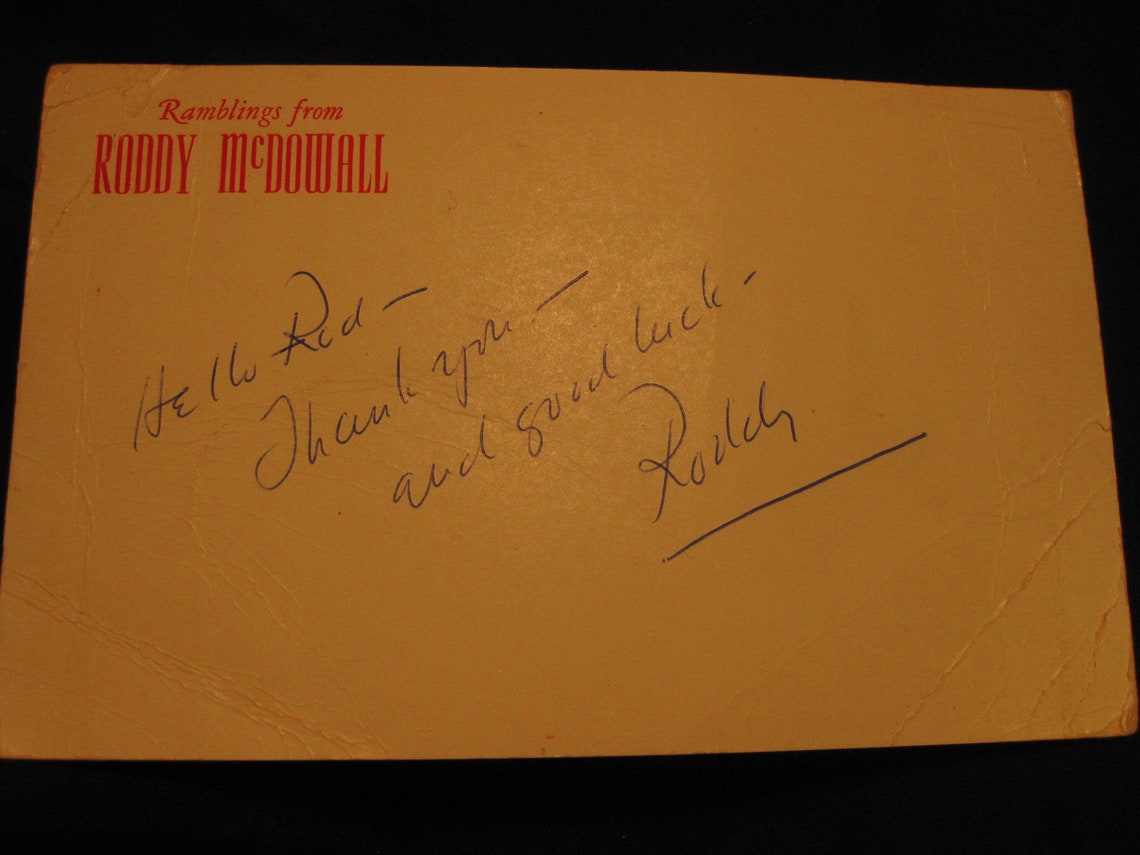 Ramblings from
RODDY McDOWALL
Hello Rod —
Thank you. —
and good luck -
Roddy